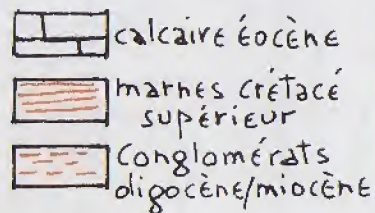 calcaire éocène
marnes crétacé
supérieur
conglomérats
oligocène/miocène